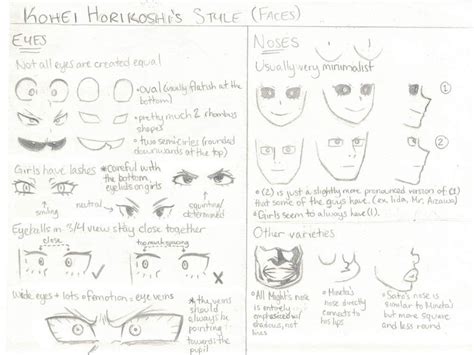 KOHEI HORIKOSHI'S STYLE (FACES)
EYES
Not all eyes are created equal
*oval (usually flatish at the
bottom)
*pretty much 2 rhombus
shapes
*two semicircles (rounded
downwards at the top)
Girls have lashes
*Careful with
the bottom
eyelids on girls
smiling
neutral
squinting/
determined
Eyeballs in 3/4 view stay close together
close
too much spacing
Wide eyes + lots of emotion = eye veins
*the veins
should
always be
pointing
towards the
pupil
NOSES
Usually very minimalist
(1)
(2)
*(2) is just a slightly more pronounced version of (1)
that some of the guys have. (ex. Iida, Mr. Aizawa)
*Girls seem to always have (1).
Other varieties
*All Might's nose
is entirely
emphasized w/
shadows, not
lines
*Mineta's
nose directly
connects to
his lips
*Sato's nose is
similar to Mineta's
but more square
and less round